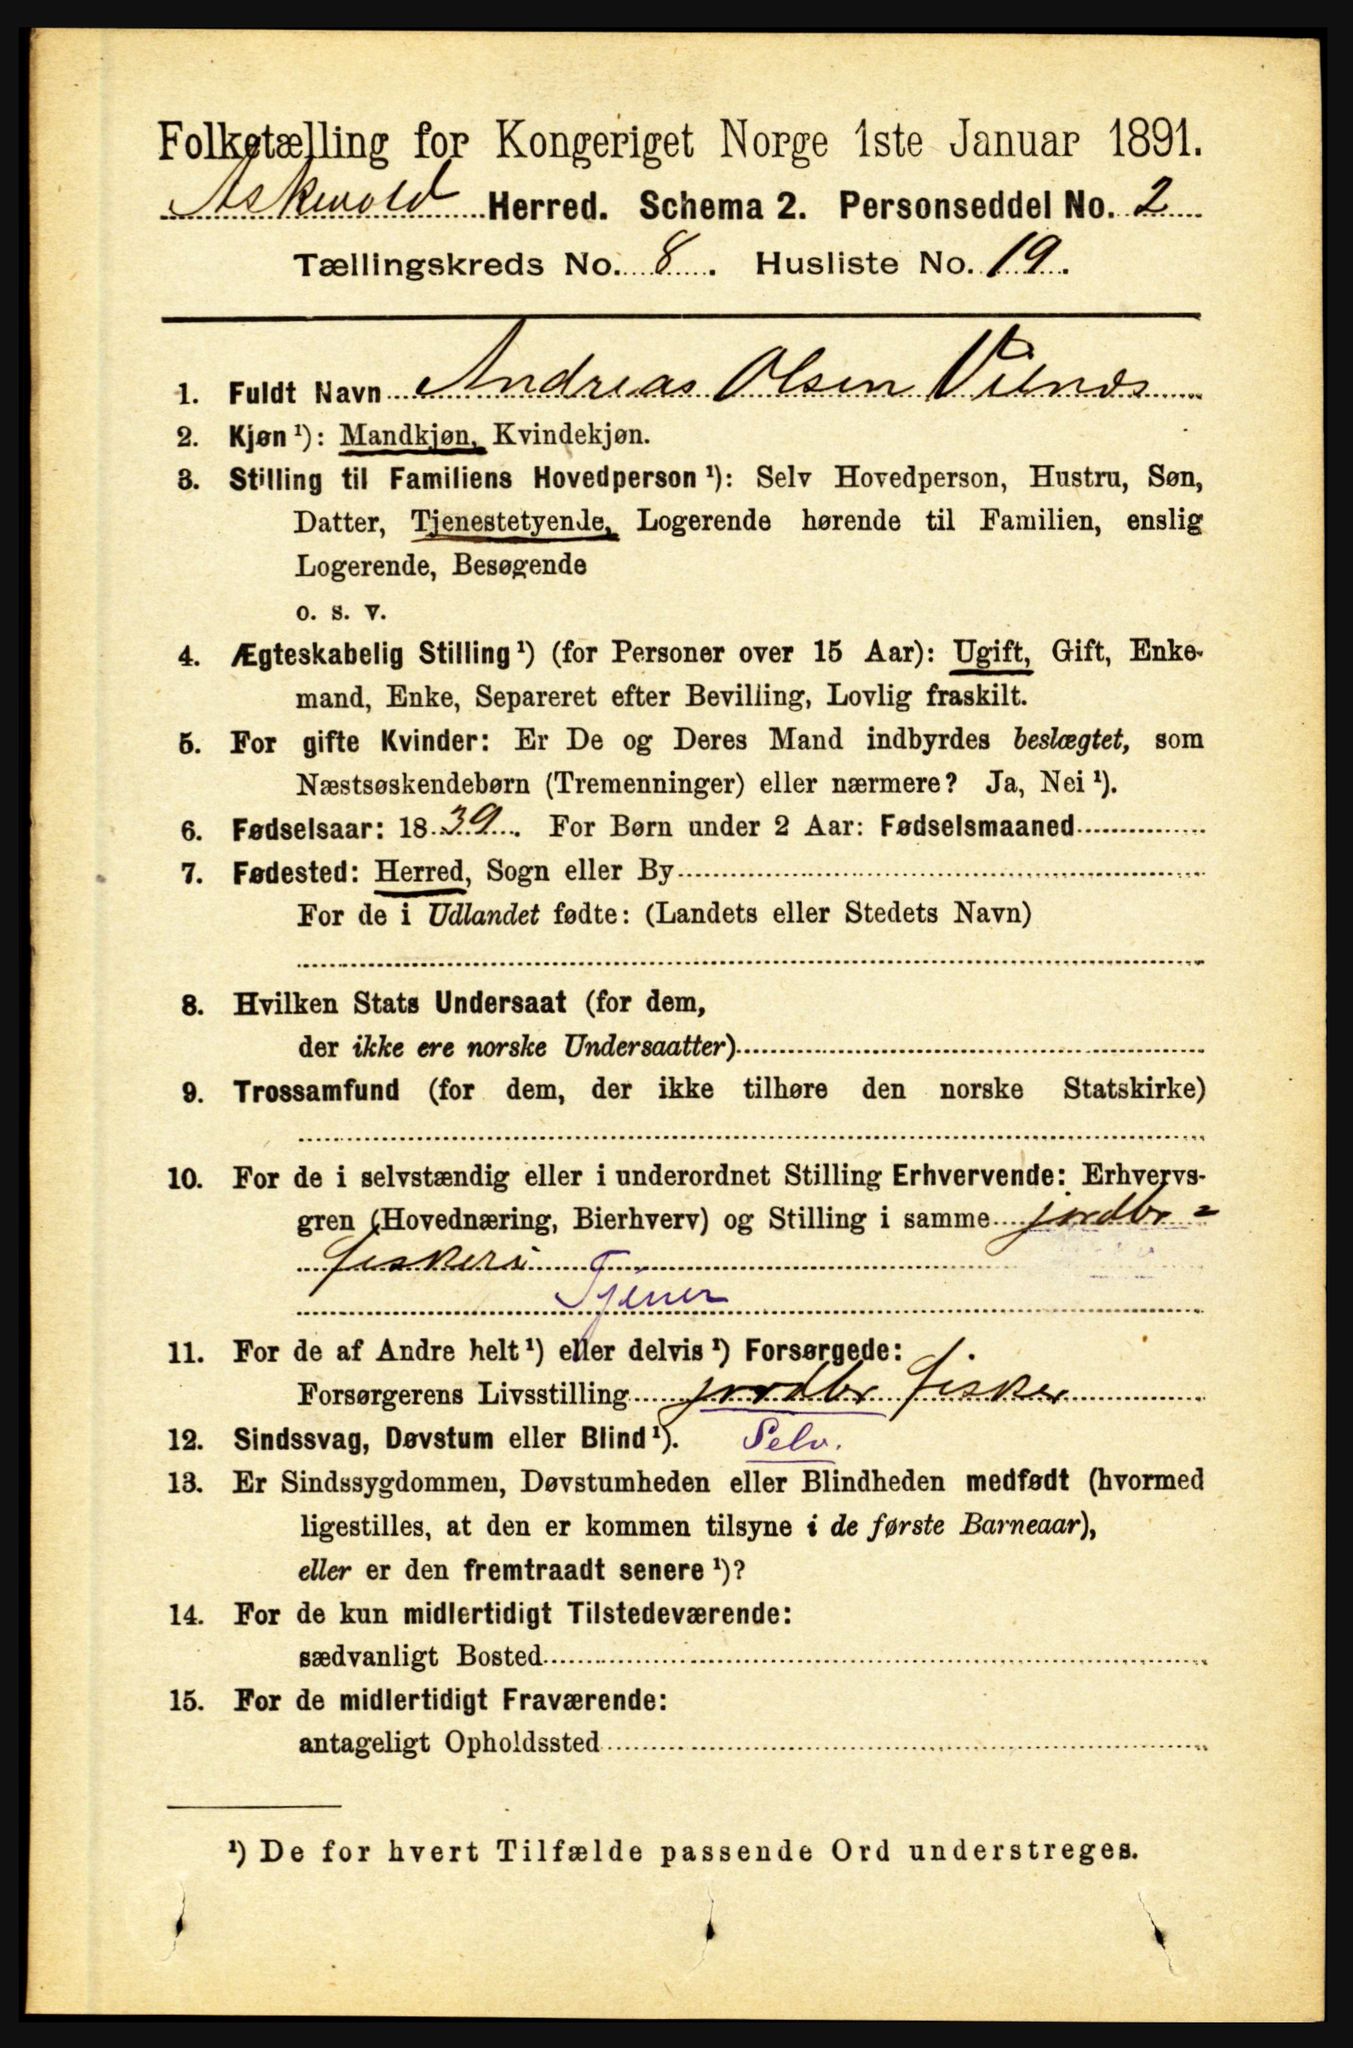 Folketælling for Kongeriget Norge 1ste Januar 1891.
Askevold Herred. Schema 2. Personseddel No. 2
Tællingskreds No. 8. Husliste No. 19.
1. Fuldt Navn Andreas Olsen Vilnæs
2. Kjøn ¹): Mandkjøn, Kvindekjøn.
3. Stilling til Familiens Hovedperson ¹): Selv Hovedperson, Hustru, Søn,
Datter, Tjenestetyende, Logerende hørende til Familien, enslig
Logerende, Besøgende
o. s. v.
4. Ægteskabelig Stilling ¹) (for Personer over 15 Aar): Ugift, Gift, Enke-
mand, Enke, Separeret efter Bevilling, Lovlig fraskilt.
5. For gifte Kvinder: Er De og Deres Mand indbyrdes beslægtet, som
Næstsøskendebørn (Tremenninger) eller nærmere? Ja, Nei ¹).
6. Fødselsaar: 1839. For Børn under 2 Aar: Fødselsmaaned
7. Fødested: Herred, Sogn eller By
For de i Udlandet fødte: (Landets eller Stedets Navn)
8. Hvilken Stats Undersaat (for dem,
der ikke ere norske Undersaatter)
9. Trossamfund (for dem, der ikke tilhøre den norske Statskirke)
10. For de i selvstændig eller i underordnet Stilling Erhvervende: Erhvervs-
gren (Hovednæring, Bierhverv) og Stilling i samme jordbr =
fiskeri
Tjener
11. For de af Andre helt ¹) eller delvis ¹) Forsørgede:
Forsørgerens Livsstilling jordbr fisker
12. Sindssvag, Døvstum eller Blind ¹). Selv.
13. Er Sindssygdommen, Døvstumheden eller Blindheden medfødt (hvormed
ligestilles, at den er kommen tilsyne i de første Barneaar),
eller er den fremtraadt senere ¹)?
14. For de kun midlertidigt Tilstedeværende:
sædvanligt Bosted
15. For de midlertidigt Fraværende:
antageligt Opholdssted
¹) De for hvert Tilfælde passende Ord understreges.